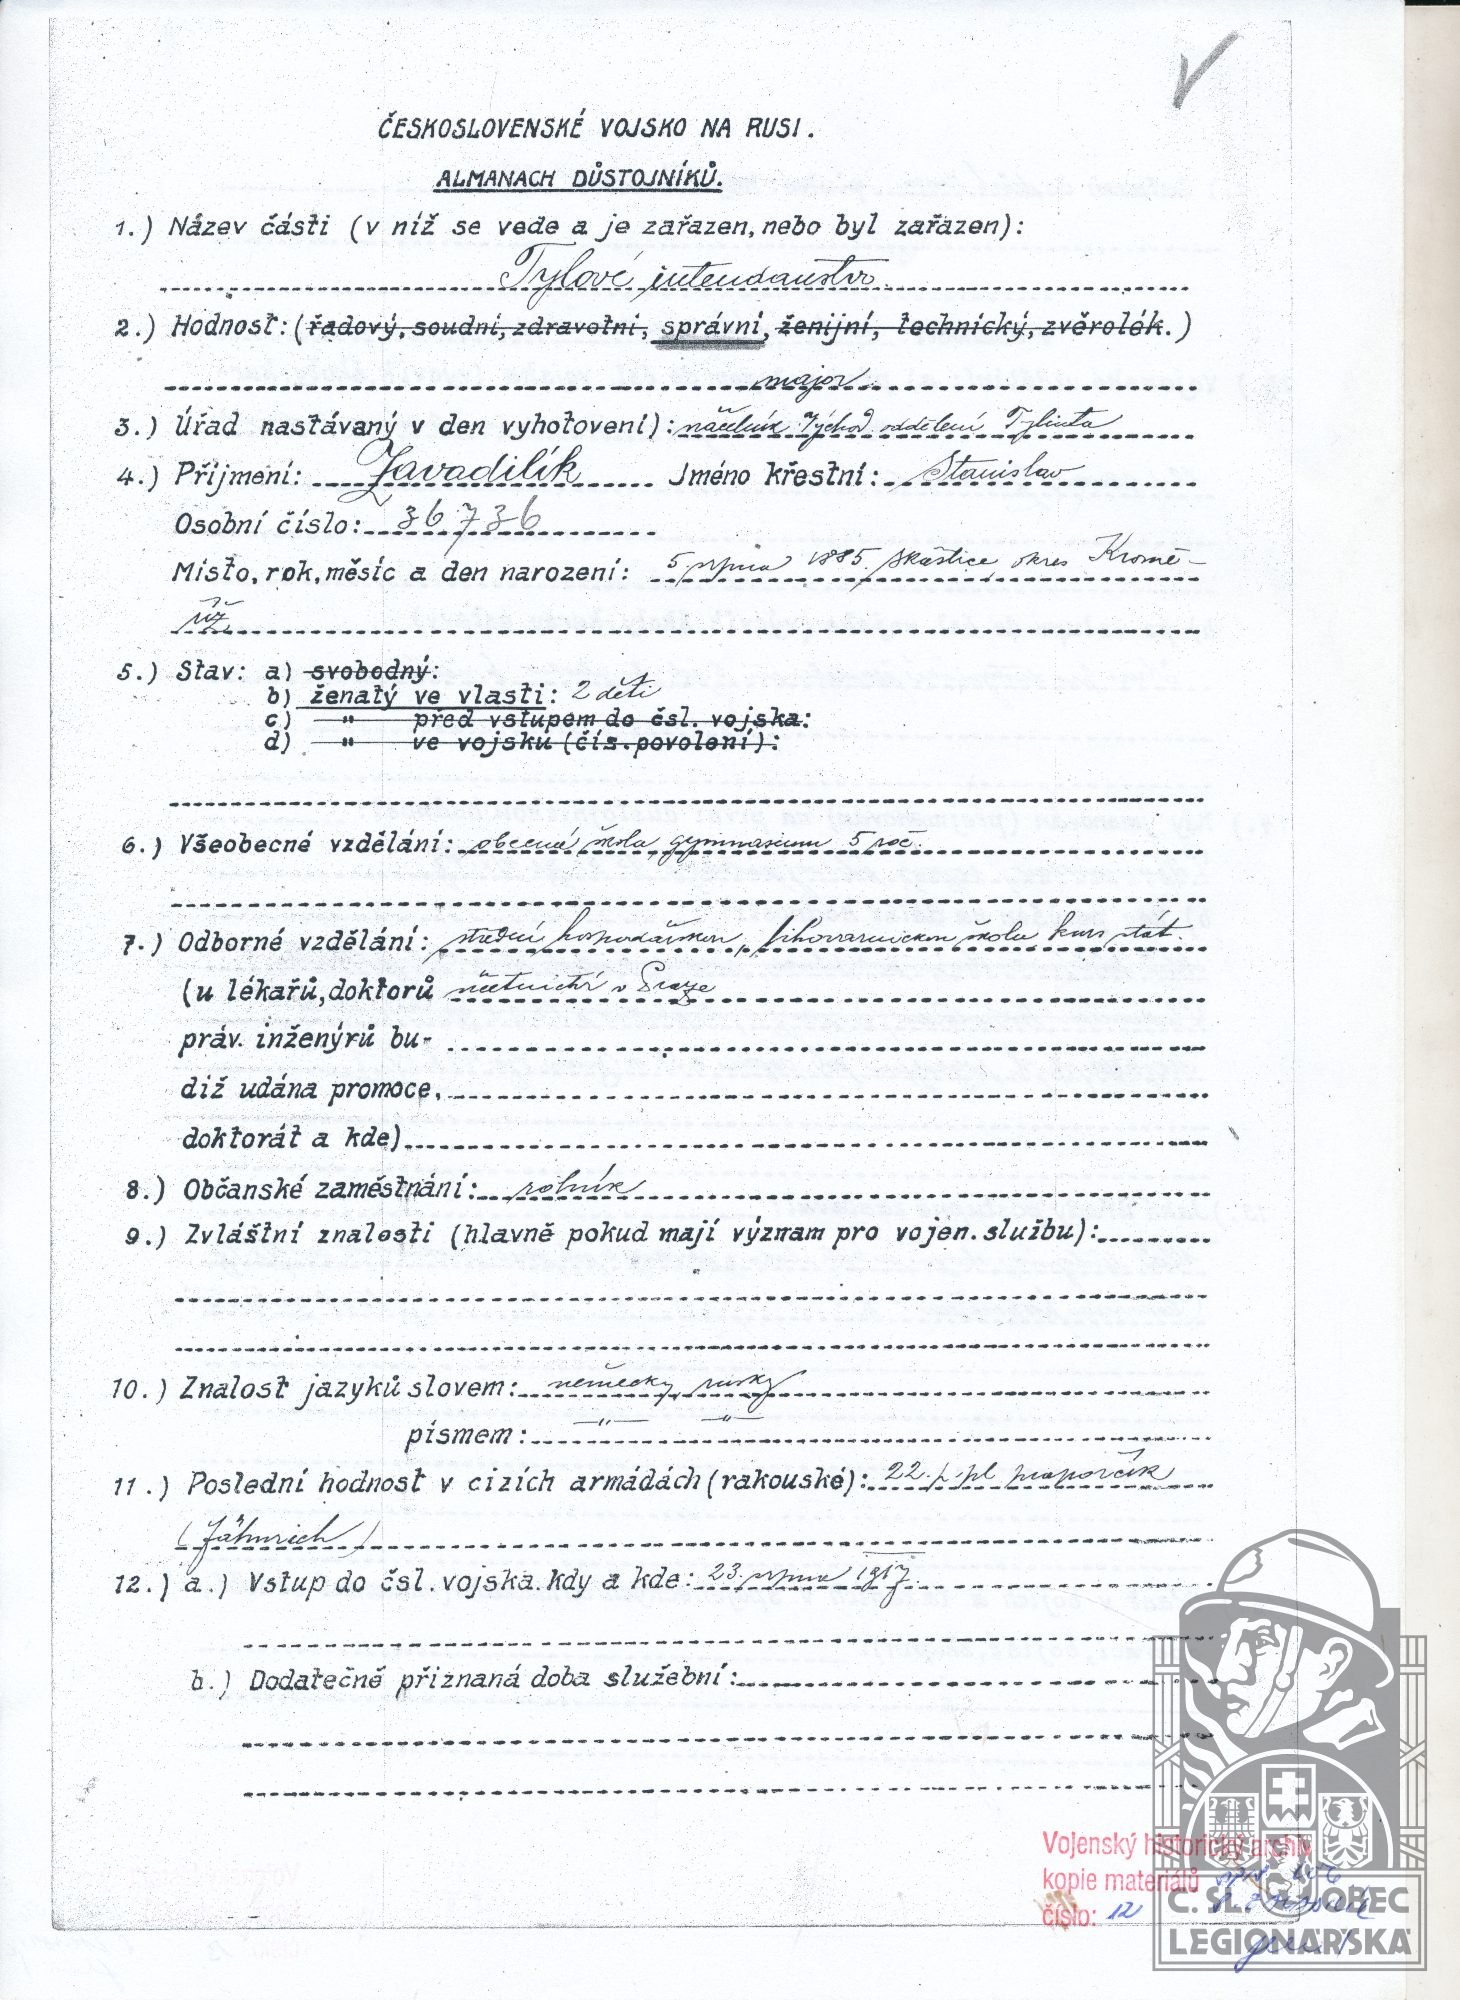 ČESKOSLOVENSKÉ VOJSKO NA RUSI.
ALMANACH DŮSTOJNÍKŮ.
1.) Název části (v níž se vede a je zařazen, nebo byl zařazen):
Tylové intendanstvo
2.) Hodnost: (řadový, soudní, zdravotní, správní, ženijní, technický, zvěrolék.)
major
3.) Úřad nastávaný v den vyhotovení): náčelník Vých. oddělení Tylinta
4.) Příjmení: Zavadilík Jméno křestní: Stanislav
Osobní číslo: 36736
Místo, rok, měsíc a den narození: 5 srpna 1885. Skaštice, okres Kromě-
říž
5.) Stav: a) svobodný:
b) ženatý ve vlasti: 2 děti
c) " před vstupem do čsl. vojska:
d) " ve vojsku (čís. povolení):
6.) Všeobecné vzdělání: obecná škola, gymnasium 5 roč.
7.) Odborné vzdělání: střední hospodářskou, lihovarnickou školu, kurs stát.
(u lékařů, doktorů účetnictví v Praze
práv. inženýrů bu-
diž udána promoce,
doktorát a kde)
8.) Občanské zaměstnání: rolník
9.) Zvláštní znalosti (hlavně pokud mají význam pro vojen. službu):
10.) Znalost jazyků slovem: německy, rusky
písmem: " "
11.) Poslední hodnost v cizích armádách (rakouské): 22. p. pl praporčík
(Fähnrich)
12.) a.) Vstup do čsl. vojska. Kdy a kde: 23. srpna 1917.
b.) Dodatečně přiznaná doba služební:
Vojenský historický archiv
kopie materiálů
číslo: 12
Č. SL. OBEC
LEGIONÁŘSKÁ